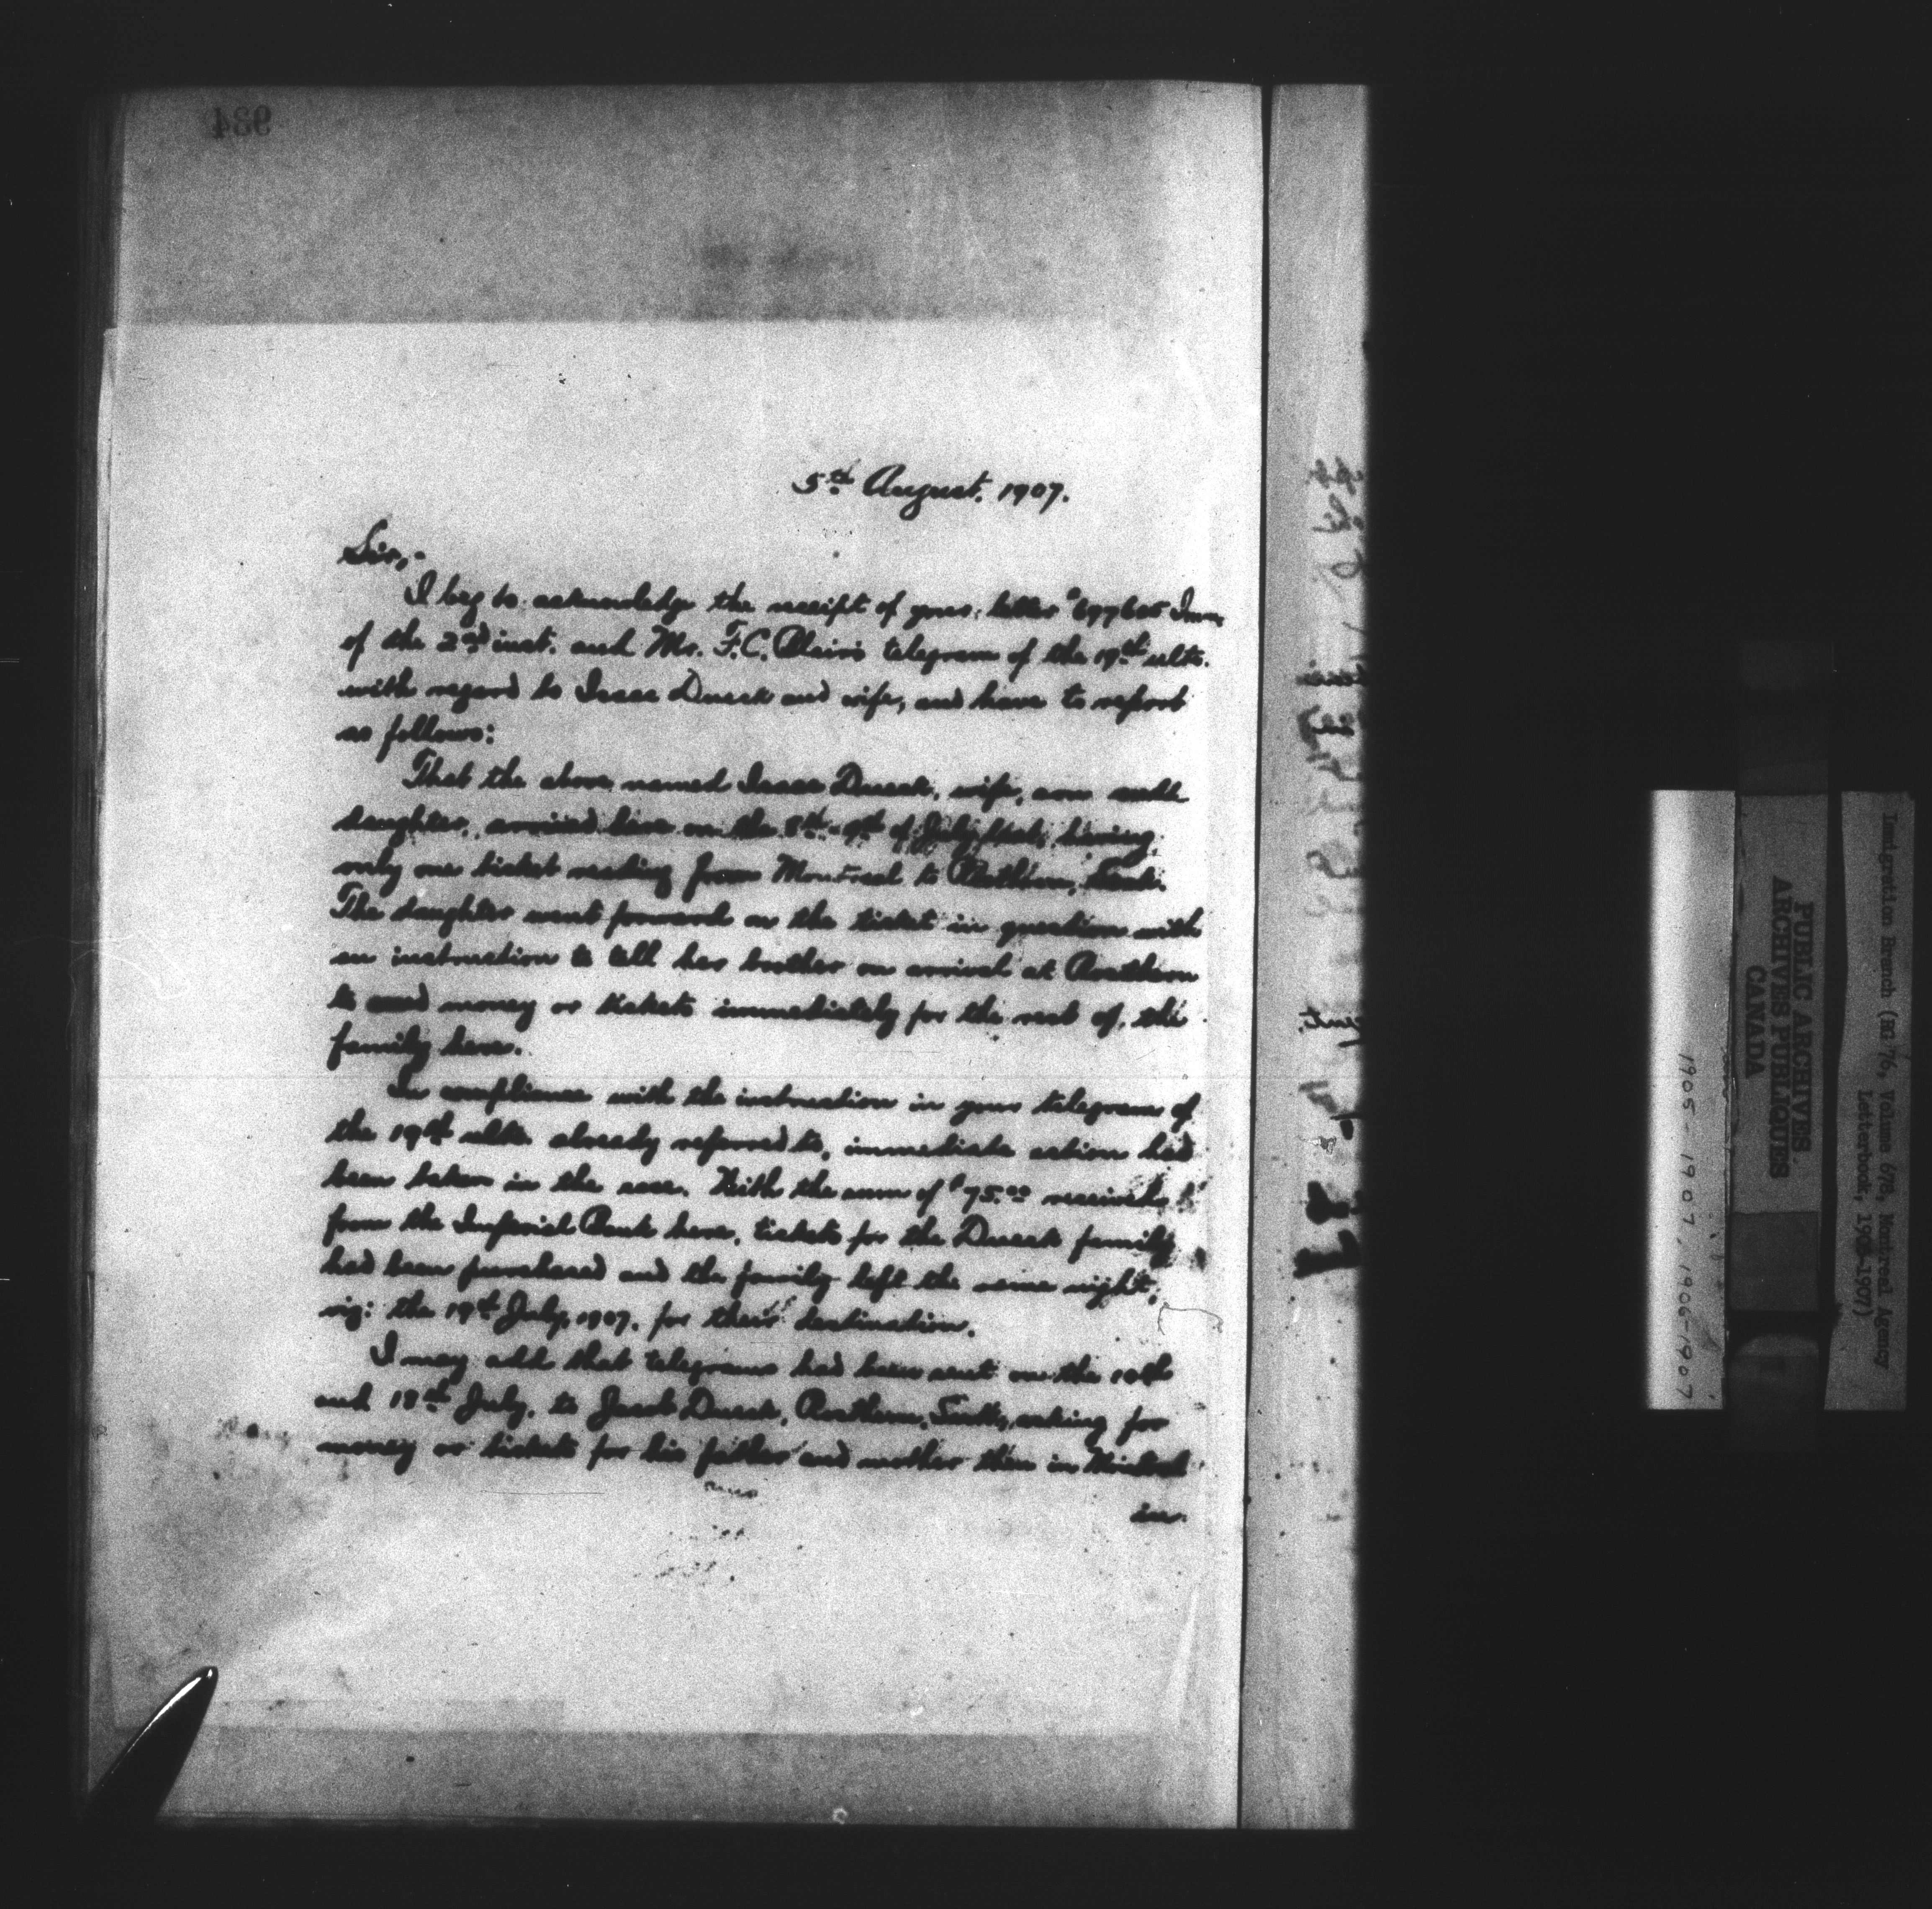 984
5th August. 1907.
Sir,-
I beg to acknowledge the receipt of your letter #697605 Imm.
of the 2nd inst. and Mr. F.C. Blair's telegram of the 19th ulto.
with regard to Isaac Dueck and wife, and have to report
as follows:
That the above named Isaac Dueck, wife, and
daughter, arrived here on the 8th 9th of July, having
only one ticket reading from Montreal to Rosthern, Sask.
The daughter went forward on the ticket in question with
an instruction to tell her brother on arrival at Rosthern
to send money or tickets immediately for the rest of the
family here.
In compliance with the instruction in your telegram of
the 19th ulto. already referred to, immediate action had
been taken in the case. With the sum of $75.00 received
from the Imperial Bank here, tickets for the Dueck family
had been purchased and the family left the same night,
viz: the 19th July, 1907. for their destination.
I may add that telegrams had been sent on the 10th
and 18th July, to Jacob Dueck, Rosthern, Sask., asking for
money or tickets for his father and mother then in Montreal
PUBLIC ARCHIVES
ARCHIVES PUBLIQUES
CANADA
Immigration Branch (RG 76, Volume 678, Montreal Agency
Letterbook, 1905-1907)
1905-1907, 1906-1907